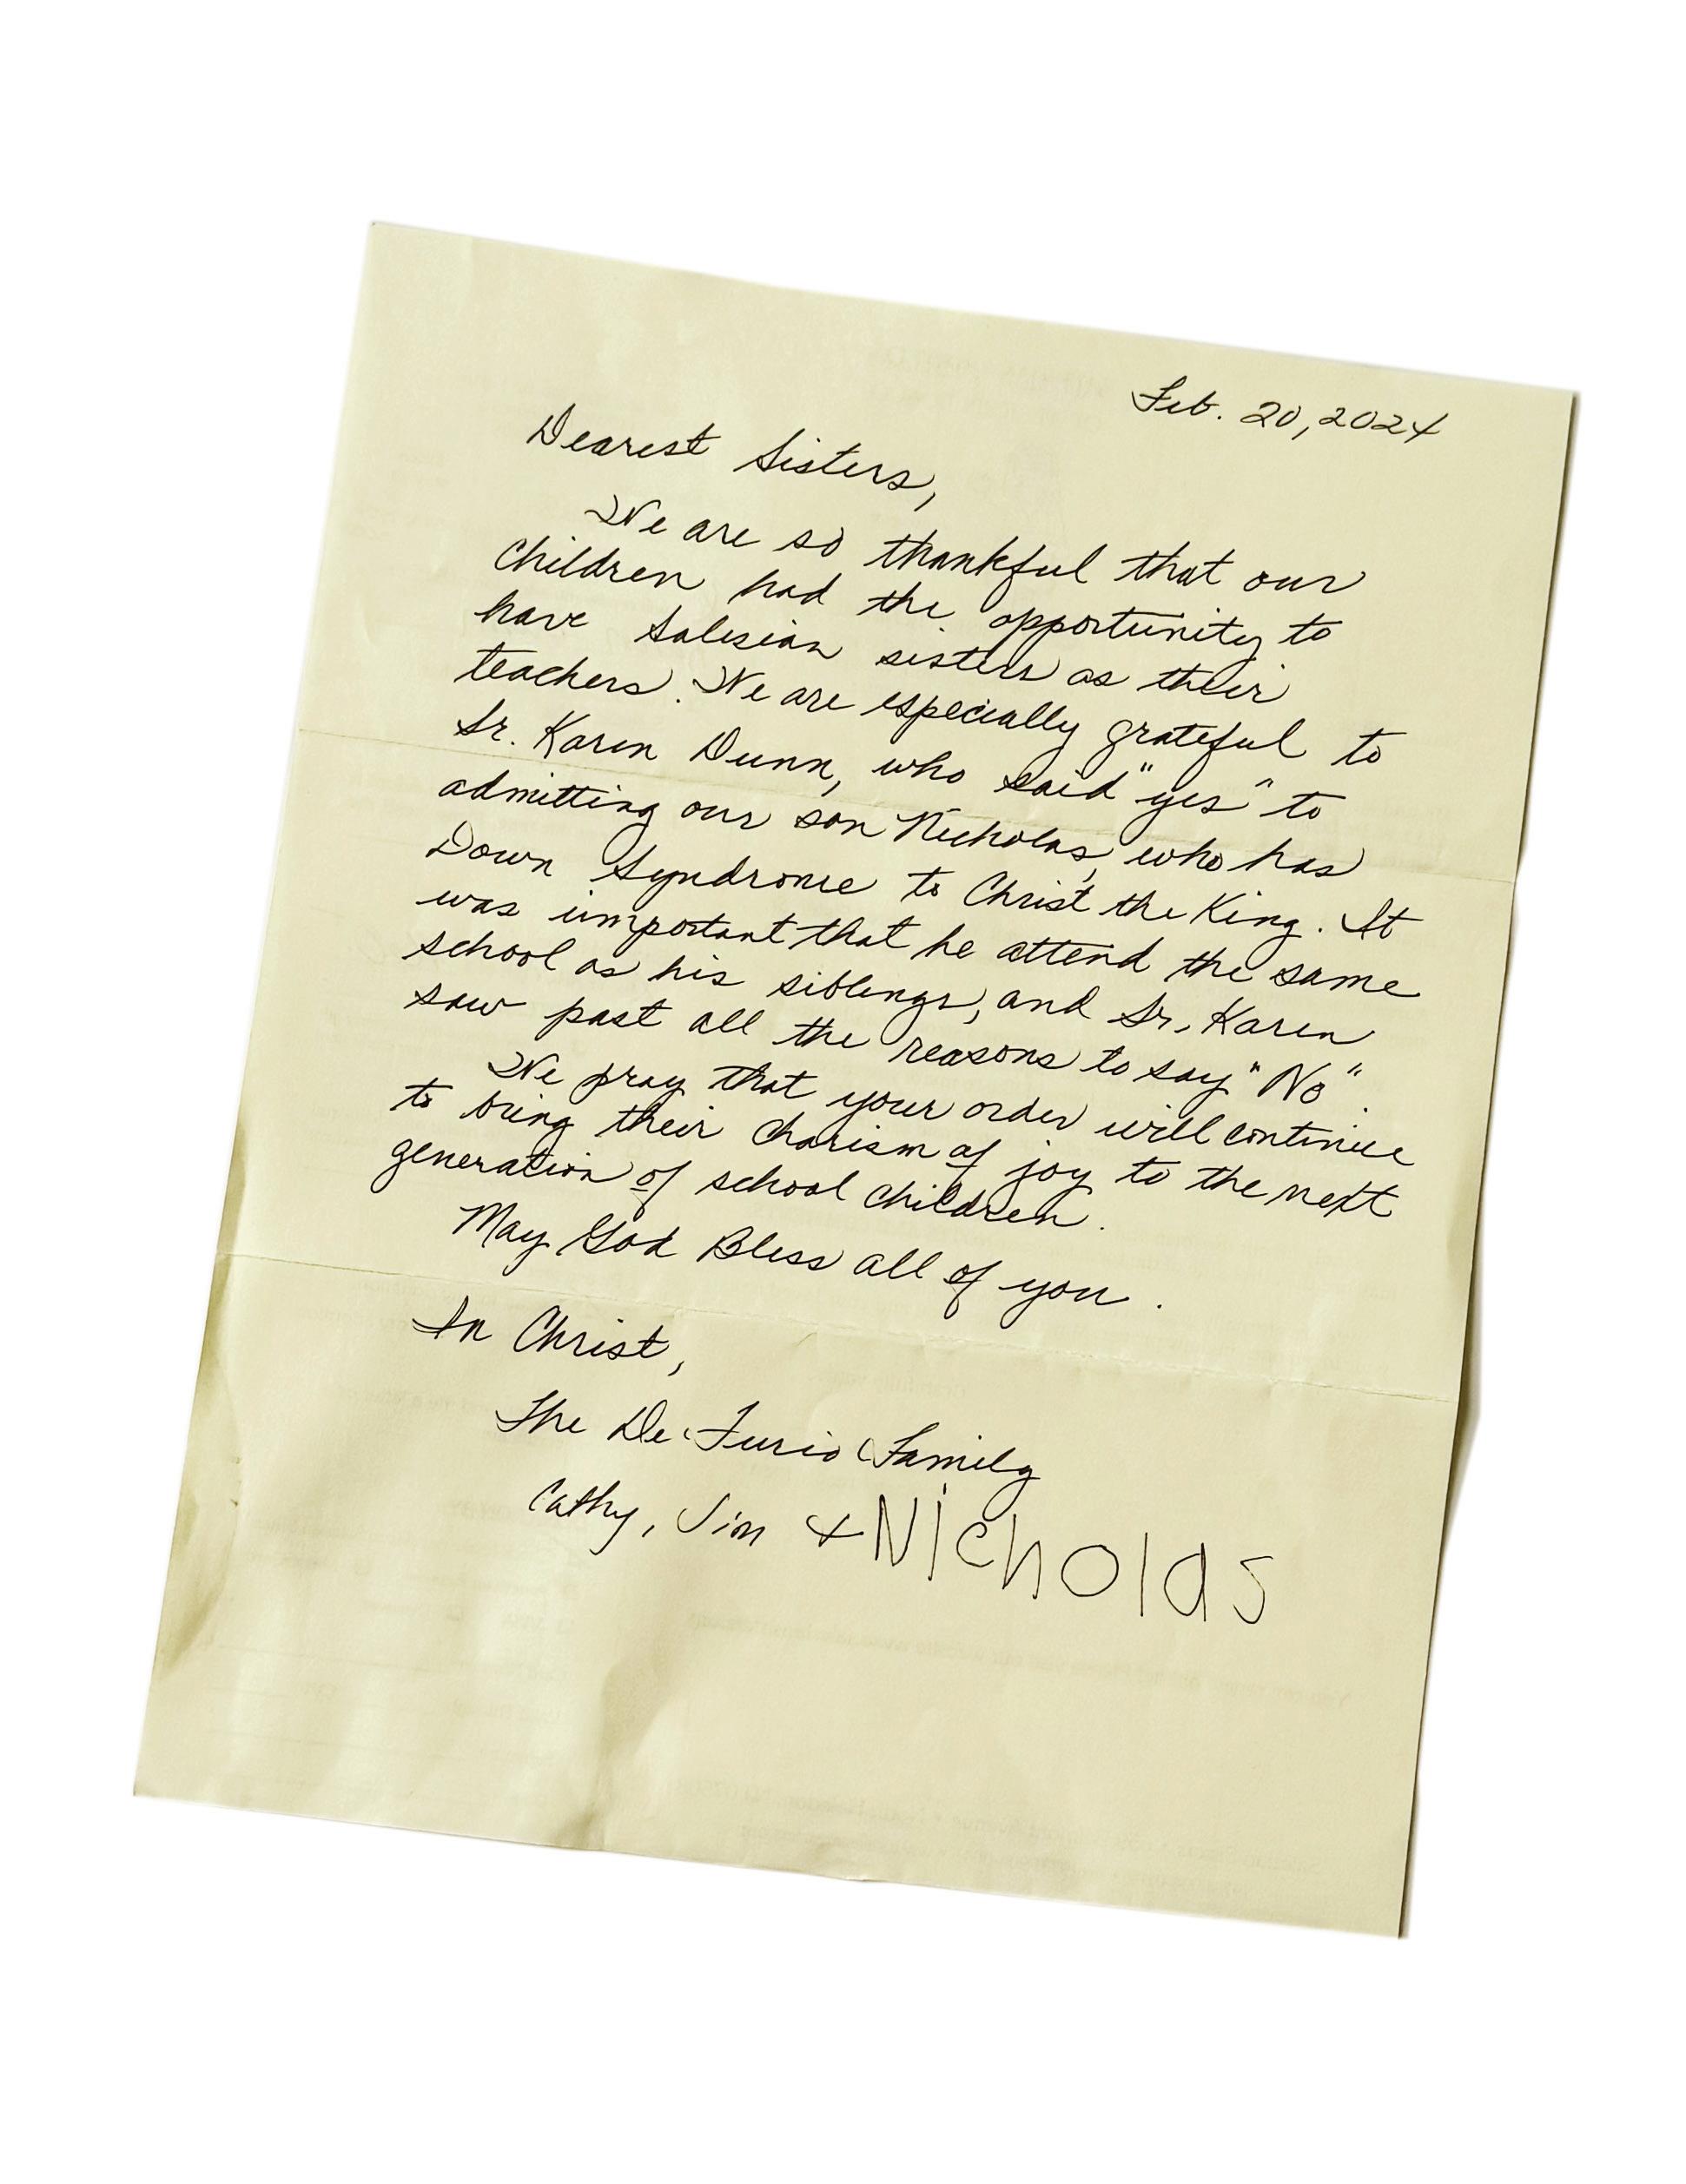 Feb. 20, 2024
Dearest Sisters,
We are so thankful that our
children had the opportunity to
have Salesian sisters as their
teachers. We are especially grateful to
Sr. Karen Dunn, who said "yes" to
admitting our son Nicholas, who has
Down Syndrome to Christ the King. It
was important that he attend the same
school as his siblings, and Sr. Karen
saw past all the reasons to say "No".
We pray that your order will continue
to bring their charism of joy to the next
generation of school children.
May God Bless all of you.
In Christ,
The De Furio Family
Cathy, Jim + Nicholas